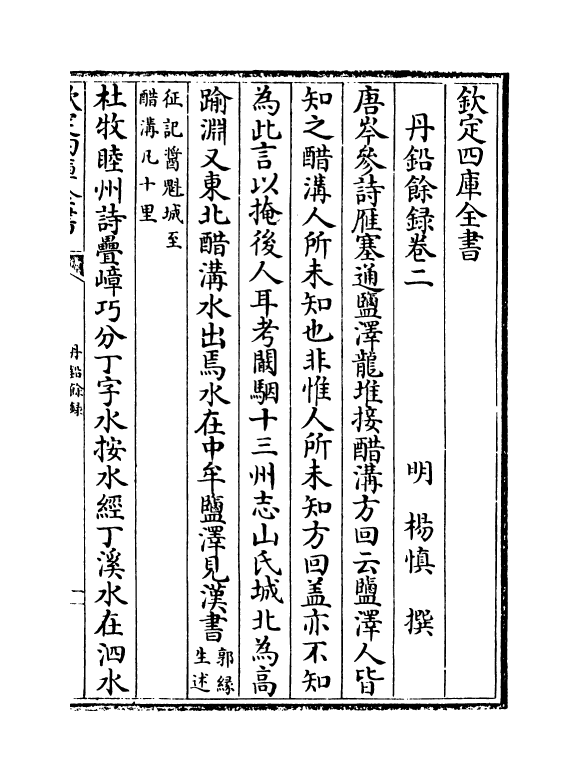 欽定四庫全書
丹鉛餘録卷二
明 楊慎 撰
唐岑參詩雁塞通鹽澤龍堆接醋溝方回云鹽澤人皆
知之醋溝人所未知也非惟人所未知方回盖亦不知
為此言以掩後人耳考闞駰十三州志山氏城北為高
踰淵又東北醋溝水出焉水在中牟鹽澤見漢書郭緣生述
征記醬魁城至醋溝凡十里
杜牧睦州詩疊嶂巧分丁字水按水經丁溪水在泗水
欽定四庫全書
丹鉛餘録